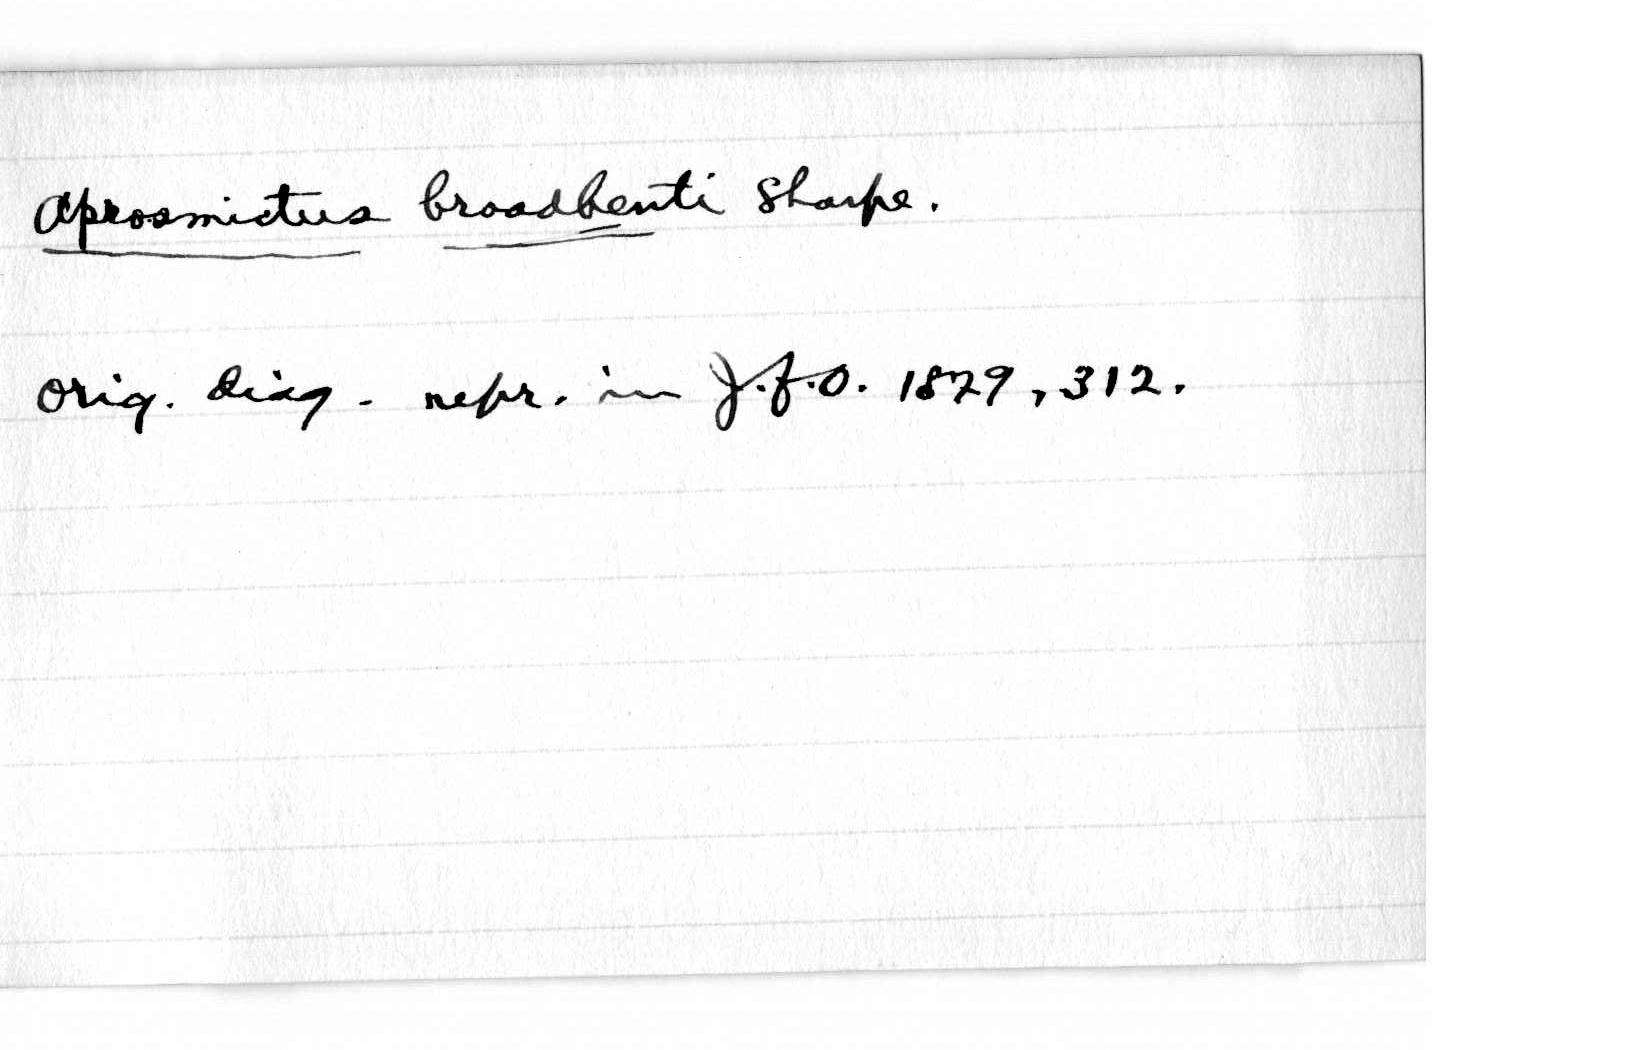 Aprosmictus broadbenti Sharpe.
Orig. diag. repr. in J.f.O. 1879, 312.